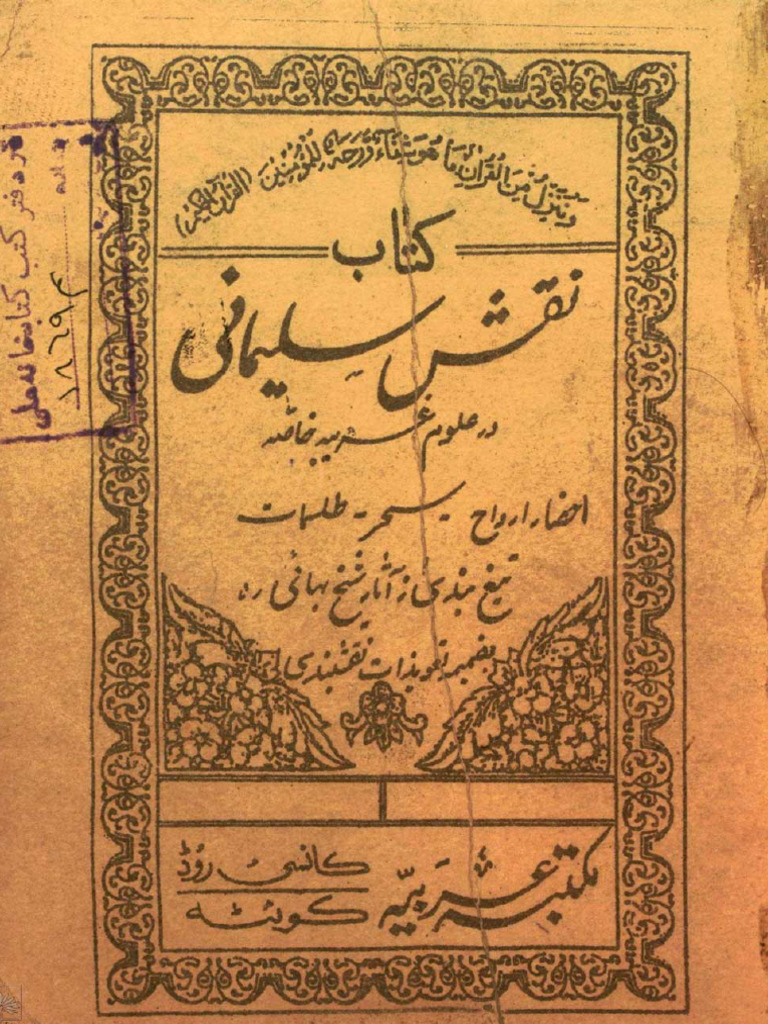 وننزل من القرآن ما هو شفاء ورحمة للمؤمنین (القرآن الحکیم)
کتاب
نقش سلیمانی
در علوم غریبه خاصه
احضار ارواح - سحر - طلسمات
تیغ بندی از آثار شیخ بهائی ره
بضمیمه تعویذات نقشبندی
مکتبه عربیّه
کانسی روڈ
کوئٹه
دفتر کتب کتابخانه ملی
۱۸۶۹۴